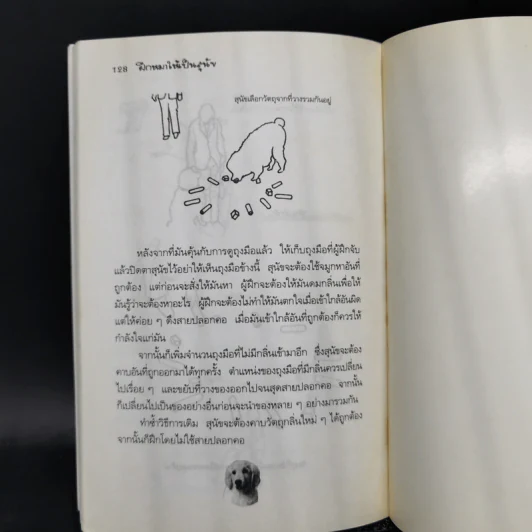 128 ฝึกหมาให้เป็นสุนัข
สุนัขเลือกวัตถุจากที่วางรวมกันอยู่
หลังจากที่มันคุ้นกับการดูถุงมือแล้ว ให้เก็บถุงมือที่ผู้ฝึกจับ
แล้วปิดตาสุนัขไว้อย่าให้เห็นถุงมือข้างนี้ สุนัขจะต้องใช้จมูกหาอันที่
ถูกต้อง แต่ก่อนจะสั่งให้มันหา ผู้ฝึกจะต้องให้มันดมกลิ่นเพื่อให้
มันรู้ว่าจะต้องหาอะไร ผู้ฝึกจะต้องไม่ทำให้มันตกใจเมื่อเข้าใกล้อันผิด
แต่ให้ค่อย ๆ ดึงสายปลอกคอ เมื่อมันเข้าใกล้อันที่ถูกต้องก็ควรให้
กำลังใจแก่มัน
จากนั้นก็เพิ่มจำนวนถุงมือที่ไม่มีกลิ่นเข้ามาอีก ซึ่งสุนัขจะต้อง
คาบอันที่ถูกออกมาได้ทุกครั้ง ตำแหน่งของถุงมือที่มีกลิ่นควรเปลี่ยน
ไปเรื่อย ๆ และขยับที่วางของออกไปจนสุดสายปลอกคอ จากนั้น
ก็เปลี่ยนไปเป็นของอย่างอื่นก่อนจะนำของหลาย ๆ อย่างมารวมกัน
ทำซ้ำวิธีการเดิม สุนัขจะต้องคาบวัตถุกลิ่นใหม่ ๆ ได้ถูกต้อง
จากนั้นก็ฝึกโดยไม่ใช้สายปลอกคอ